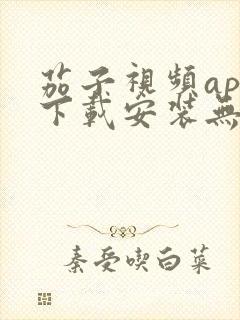 茄子視頻ap
下載安裝無
秦受喫白菜